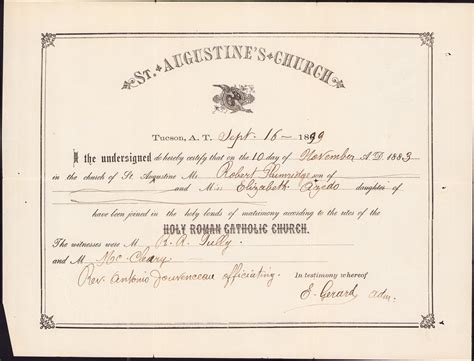 ST. AUGUSTINE'S CHURCH
Tucson, A. T. Sept. 16 - 1899
I the undersigned do hereby certify that on the 10 day of November A.D. 1883
in the church of St. Augustine Mr. Robert Thimridge son of
and Miss Elizabeth daughter of
have been joined in the holy bonds of matrimony according to the rites of the
HOLY ROMAN CATHOLIC CHURCH.
The witnesses were M R. R. Tully
and M Mc Cleary
Rev. Antonio Jouvenceau officiating. In testimony whereof
E. Gerard adm.